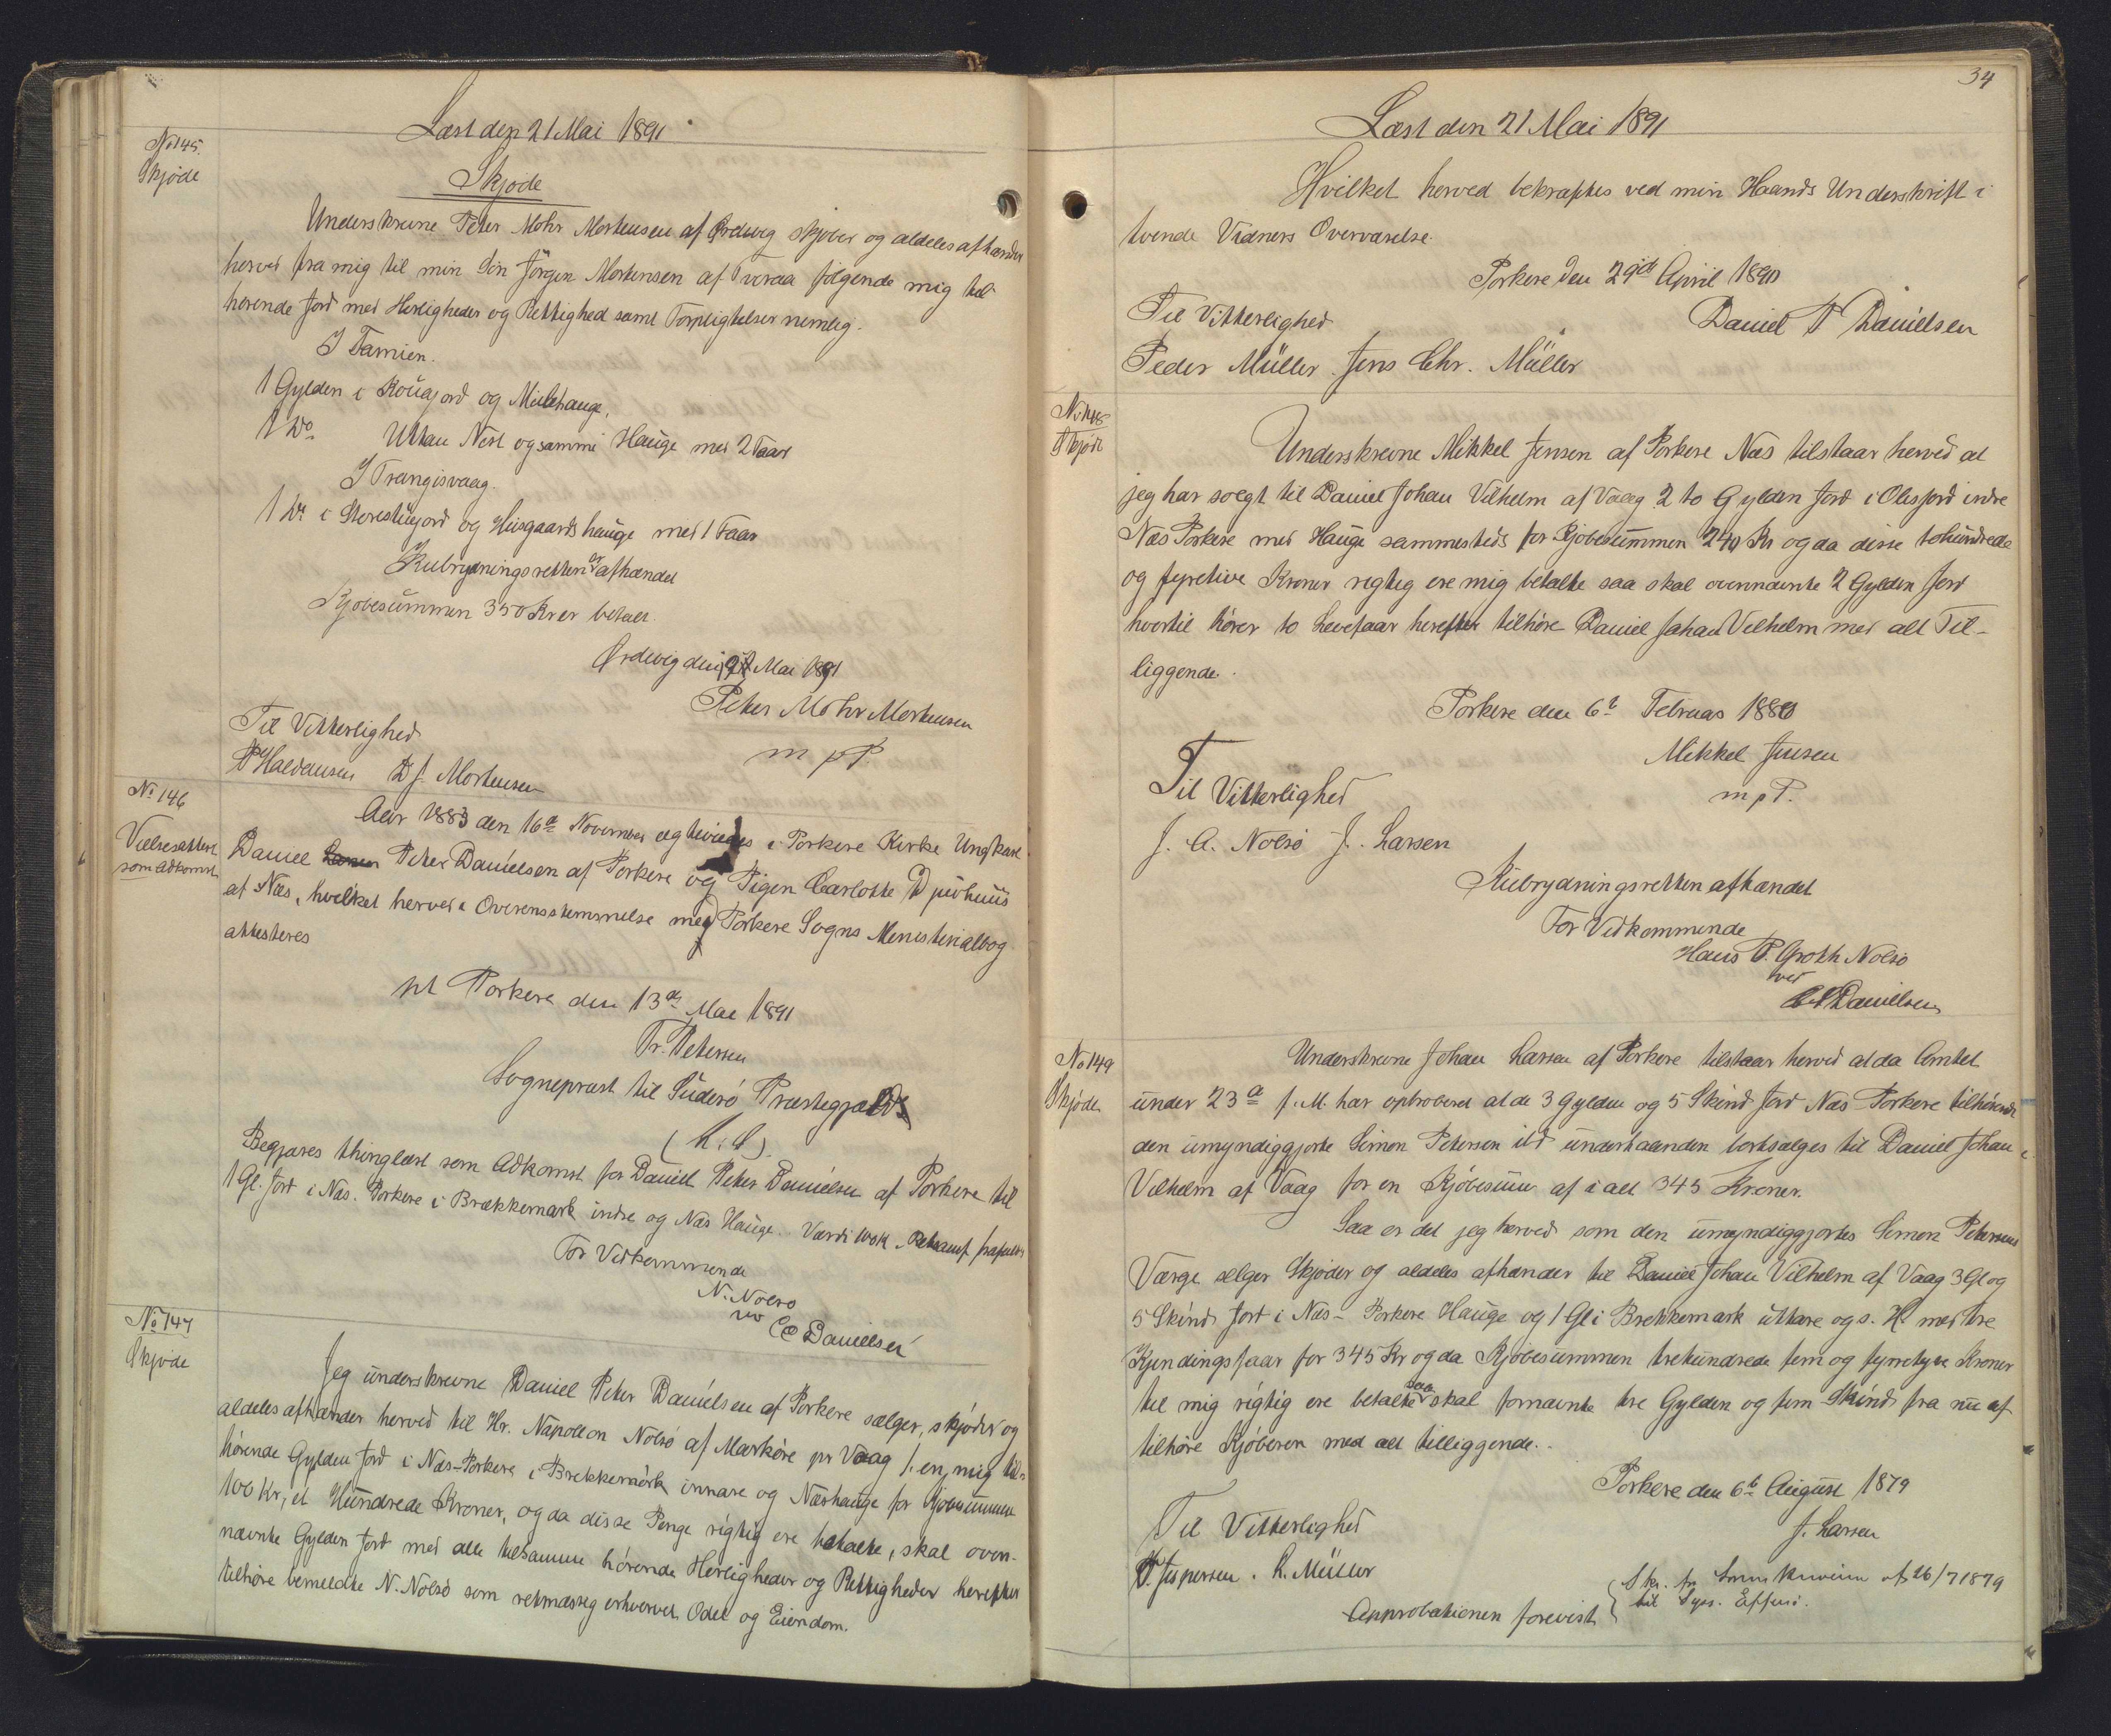 Læst den 21 Mai 1891
No 145.
Skjøde
Skjøde
Underskrevne Peter Mohr Mortensen af Ørdevig skjøder og aldeles afhænder
herved fra mig til min Søn Jörgen Mortensen af Tveraa følgende mig til-
hørende Jord med Herligheder og Rettighed samt Forpligtelser nemlig.
I Famien.
1 Gylden i Kougajord og Mulehauge,
1 Do Uttan Nest og samme Hauge med 2 Faar
I Trangisvaag.
1 Do i Storestuejord og Husgaards hauge med 1 Faar
Kulbrydningsretten er afhændet
Kjøbesummen 350 Kr er betalt.
Ørdevig den 21 Mai 1891
Peter Mohr Mortensen
m p P.
Til Vitterlighed
P Haldansen D J. Mortensen
No 146
Vielsesattest
som Adkomst
Aar 1883 den 16de November ægteviedes i Porkere Kirke Ungkarl
Daniel Peter Danielsen af Porkere og Pigen Carlotte Djurhuus
af Næs, hvilket herved i Overensstemmelse med Porkere Sogns Ministerialbog
attesteres
pt Porkere den 13de Mai 1891
Fr. Petersen
Sognepræst til Suderø Præstegjæld
(L. S.)
Begjæres thinglæst som Adkomst for Daniel Peter Danielsen af Porkere til
1 Gl. Jord i Næs. Porkere i Brækkemark indre og Næs Hauge. Værdi 100 K.
For Vedkommende
N. Nolsø
ved
C Danielsen
No 147
Skjøde
Jeg underskrevne Daniel Peter Danielsen af Porkere sælger, skjøder og
aldeles afhænder herved til Hr. Napoleon Nolsø af Mærkøre pr Vaag 1. en, mig til-
hørende Gylden Jord i Næs-Porkere i Brekkemörk innare og Næshauge for Kjøbesummen
100 Kr, et Hundrede Kroner, og da disse Penge rigtig ere betalte, skal oven-
nævnte Gylden Jord med alle tilsamme hörende Herligheder og Rettigheder herefter
tilhøre bemeldte N. Nolsö som retmæssig erhvervet Odel og Eiendom.
34
Læst den 21 Mai 1891
Hvilket herved bekræftes ved min Haands Underskrift i
tvende Vidners Overværelse.
Porkere den 29de April 1890
Til Vitterlighed
Daniel P Danielsen
Peder Müller. Jens Chr. Müller
No 148
Skjøde
Underskrevne Mikkel Jensen af Porkere Næs tilstaar herved at
jeg har solgt til Daniel Johan Vilhelm af Vaag 2 to Gylden Jord i Olisjord indre
Næs Porkere med Hauge sammesteds for Kjøbesummen 240 Kr og da disse tohundrede
og fyretive Kroner rigtig ere mig betalte saa skal ovennævnte 2 Gylden Jord
hvortil hører to Levefaar herefter tilhøre Daniel Johan Vilhelm med alt Til-
liggende.
Porkere den 6te Februar 1880
Mikkel Jensen
m p P.
Til Vitterlighed
J. A. Nolsø J. Larsen
Kulbrydningsretten afhændet
For Vedkommende
Hans P. Groth Nolsø
ved
C Danielsen
No 149
Skjøde
Underskrevne Johan Larsen af Porkere tilstaar herved at da Amtet
under 23de f. M. har approberet at de 3 Gylden og 5 Skind Jord Næs-Porkere tilhørende
den umyndiggjorte Simon Petersen ibd underhaanden bortsælges til Daniel Johan
Vilhelm af Vaag for en Kjøbesum af i alt 345 Kroner.
Saa er det jeg herved som den umyndiggjortes Simon Petersens
Værge sælger Skjøder og aldeles afhænder til Daniel Johan Vilhelm af Vaag 3 Gl og
5 Skind Jord i Næs- Porkere Hauge og 1 Gl i Brekkemark uttare og s. H. med tre
Kjendingsfaar for 345 Kr og da Kjøbesummen trehundrede fem og fyrretyve Kroner
til mig rigtig ere betalte saa skal fornævnte tre Gylden og fem Skind fra nu af
tilhøre Kjøberen med alt tilliggende.
Porkere den 6te August 1879
J. Larsen
Til Vitterlighed
P. Jespersen. R. Müller
Approbationen forevist
Skr. fra af 26/7 1879
til Sys. Effersø.